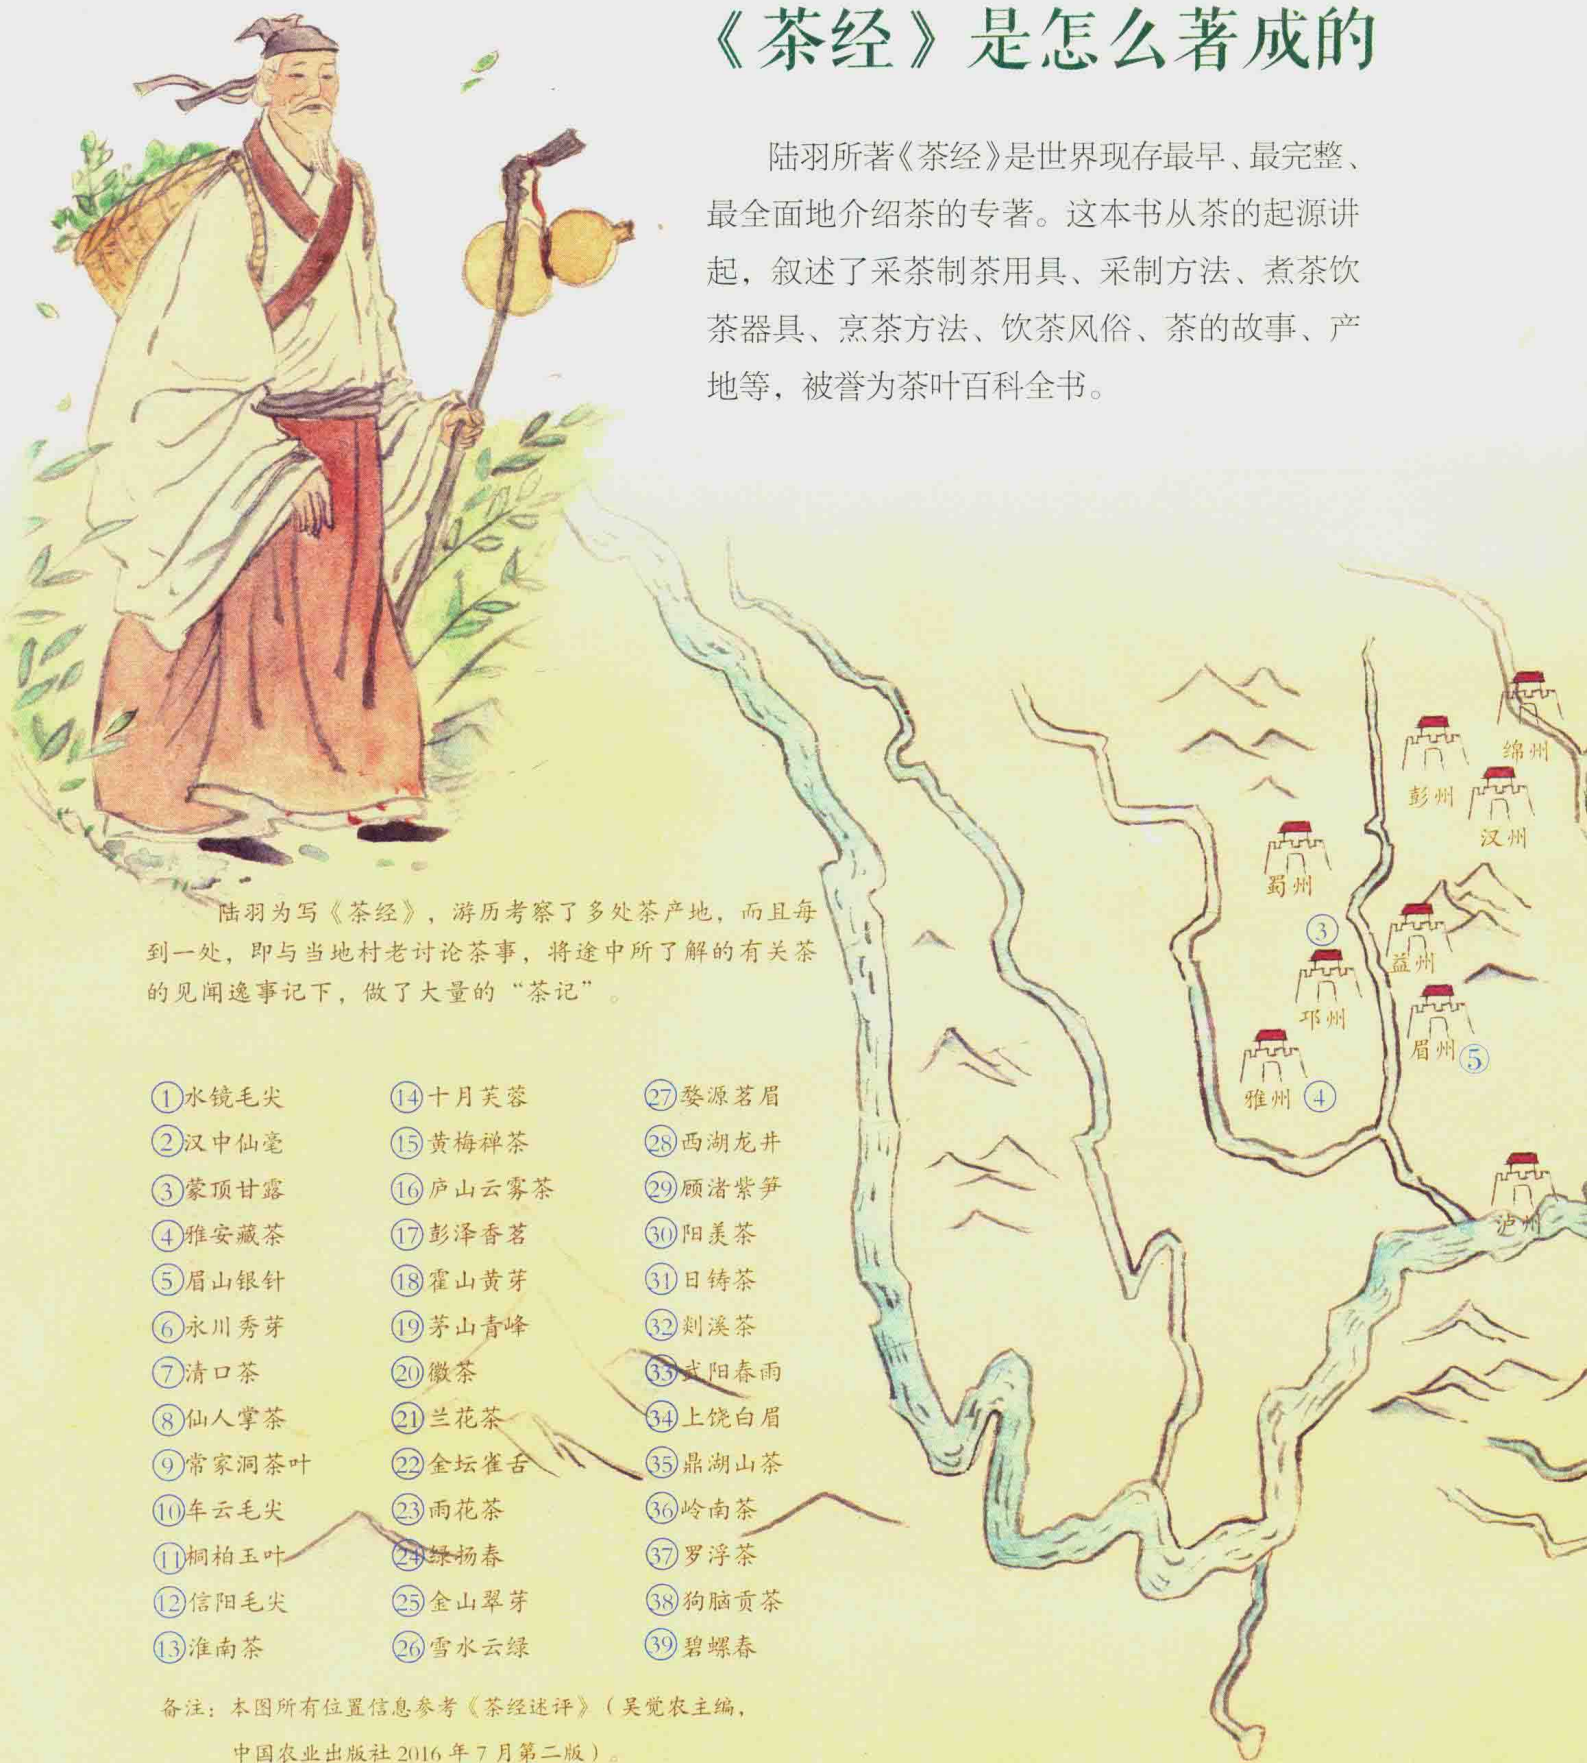 《茶经》是怎么著成的
陆羽所著《茶经》是世界现存最早、最完整、
最全面地介绍茶的专著。这本书从茶的起源讲
起，叙述了采茶制茶用具、采制方法、煮茶饮
茶器具、烹茶方法、饮茶风俗、茶的故事、产
地等，被誉为茶叶百科全书。
绵州
彭州
汉州
蜀州
③
益州
邛州
眉州⑤
雅州④
泸州
陆羽为写《茶经》，游历考察了多处茶产地，而且每
到一处，即与当地村老讨论茶事，将途中所了解的有关茶
的见闻逸事记下，做了大量的“茶记”。
①水镜毛尖
②汉中仙毫
③蒙顶甘露
④雅安藏茶
⑤眉山银针
⑥永川秀芽
⑦清口茶
⑧仙人掌茶
⑨常家洞茶叶
⑩车云毛尖
⑪桐柏玉叶
⑫信阳毛尖
⑬淮南茶
⑭十月芙蓉
⑮黄梅禅茶
⑯庐山云雾茶
⑰彭泽香茗
⑱霍山黄芽
⑲茅山青峰
⑳徽茶
㉑兰花茶
㉒金坛雀舌
㉓雨花茶
㉔绿扬春
㉕金山翠芽
㉖雪水云绿
㉗婺源茗眉
㉘西湖龙井
㉙顾渚紫笋
㉚阳羡茶
㉛日铸茶
㉜剡溪茶
㉝武阳春雨
㉞上饶白眉
㉟鼎湖山茶
㊱岭南茶
㊲罗浮茶
㊳狗脑贡茶
㊴碧螺春
备注：本图所有位置信息参考《茶经述评》（吴觉农主编，
中国农业出版社2016年7月第二版）。